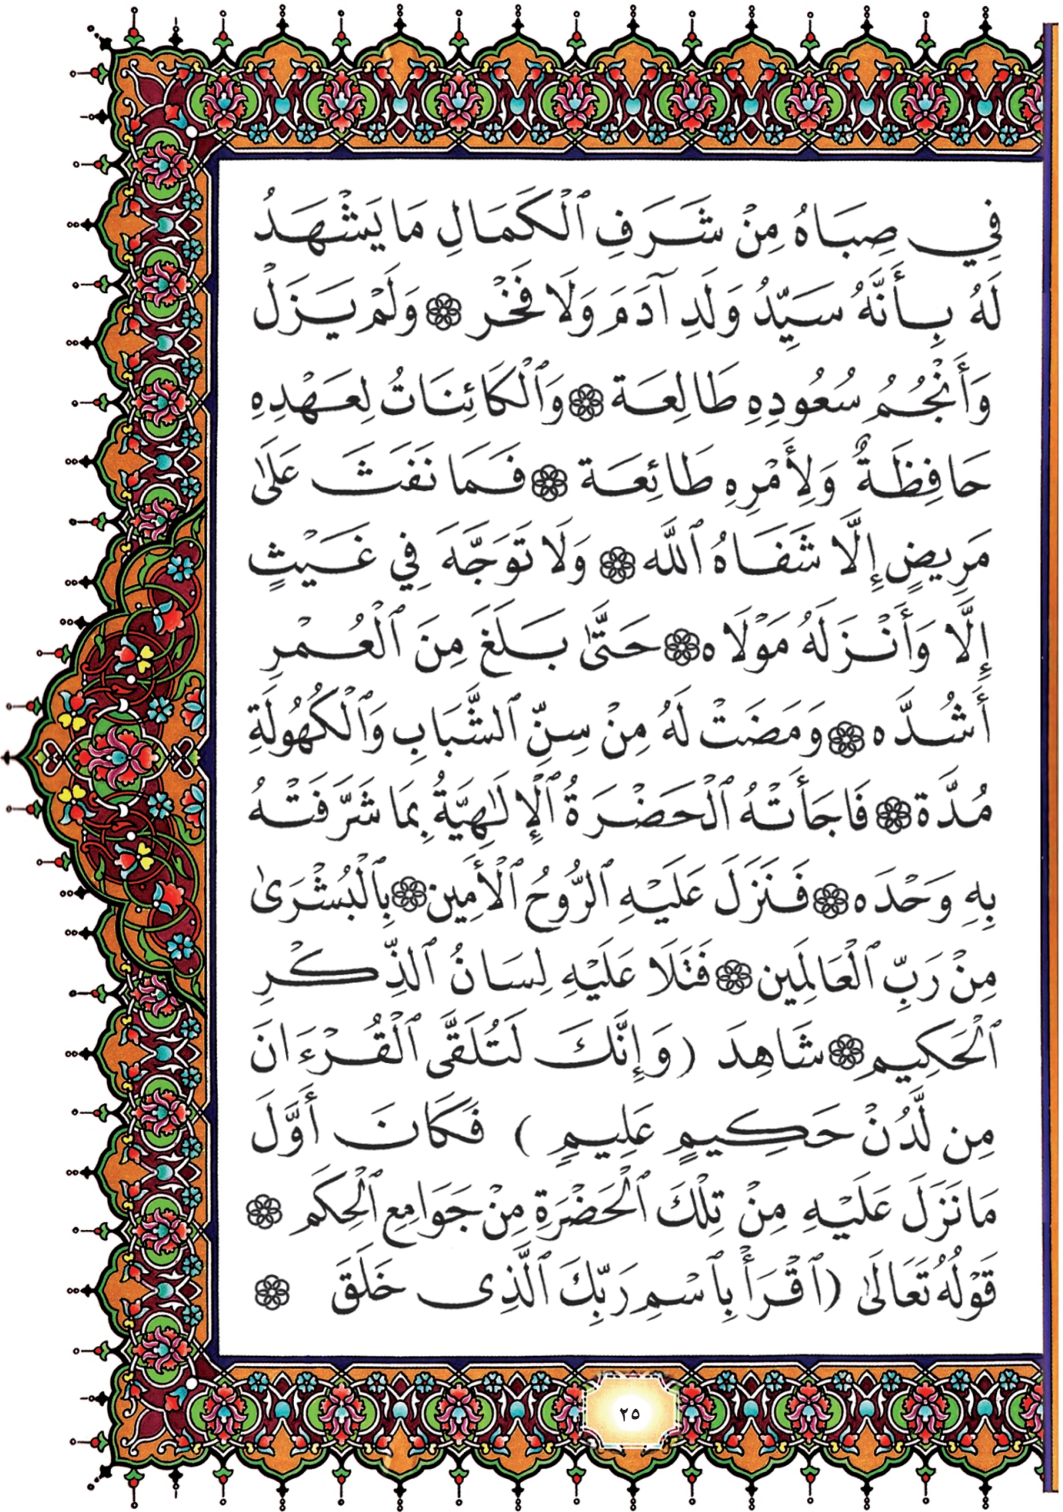 فِي صِبَاهُ مِنْ شَرَفِ ٱلْكَمَالِ مَا يَشْهَدُ
لَهُ بِأَنَّهُ سَيِّدُ وَلَدِ آدَمَ وَلَا فَخْر ۞ وَلَمْ يَزَلْ
وَأَنْجُمُ سُعُودِهِ طَالِعَة ۞ وَٱلْكَائِنَاتُ لِعَهْدِهِ
حَافِظَةٌ وَلِأَمْرِهِ طَائِعَة ۞ فَمَا نَفَثَ عَلَىٰ
مَرِيضٍ إِلَّا شَفَاهُ ٱللَّه ۞ وَلَا تَوَجَّهَ فِي غَيْثٍ
إِلَّا وَأَنْزَلَهُ مَوْلَاه ۞ حَتَّىٰ بَلَغَ مِنَ ٱلْعُمْرِ
أَشُدَّه ۞ وَمَضَتْ لَهُ مِنْ سِنِّ ٱلشَّبَابِ وَٱلْكُهُولَةِ
مُدَّة ۞ فَاجَأَتْهُ ٱلْحَضْرَةُ ٱلْإِلَـٰهِيَّةُ بِمَا شَرَّفَتْهُ
بِهِ وَحْدَه ۞ فَنَزَلَ عَلَيْهِ ٱلرُّوحُ ٱلْأَمِين ۞ بِٱلْبُشْرَىٰ
مِنْ رَبِّ ٱلْعَالَمِين ۞ فَتَلَا عَلَيْهِ لِسَانُ ٱلذِّكْرِ
ٱلْحَكِيم ۞ شَاهِدَ (وَإِنَّكَ لَتُلَقَّى ٱلْقُرْءَانَ
مِن لَّدُنْ حَكِيمٍ عَلِيمٍ) فَكَانَ أَوَّلَ
مَا نَزَلَ عَلَيْهِ مِنْ تِلْكَ ٱلْحَضْرَةِ مِنْ جَوَامِعِ ٱلْحِكَم ۞
قَوْلُهُ تَعَالَىٰ (ٱقْرَأْ بِٱسْمِ رَبِّكَ ٱلَّذِى خَلَقَ ۞
٢٥